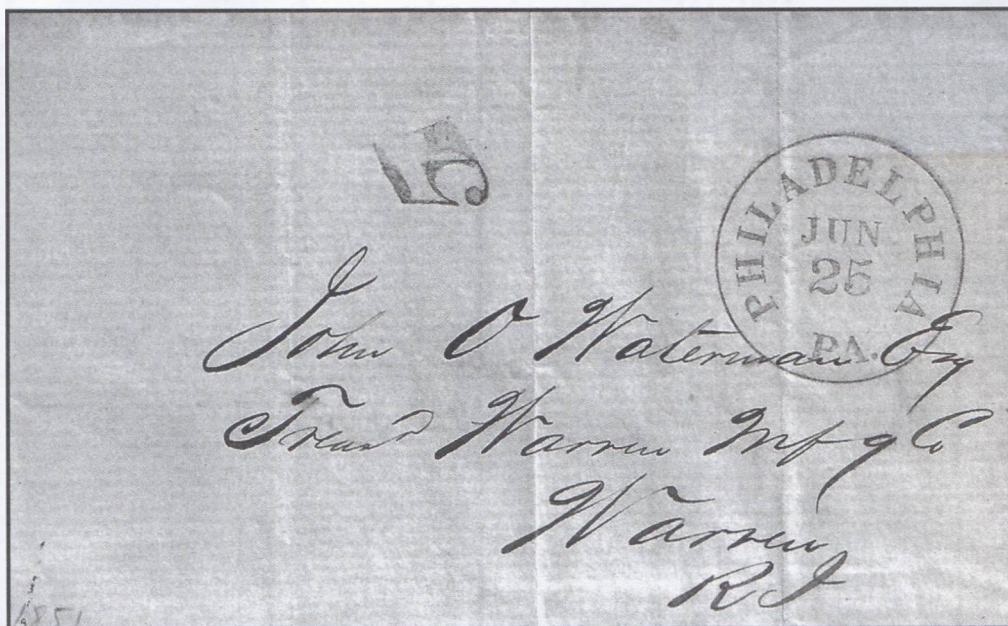 5
PHILADELPHIA
JUN
25
PA.
John O Waterman Esq
Treas^r Warren Mfg Co
Warren
R I
1851